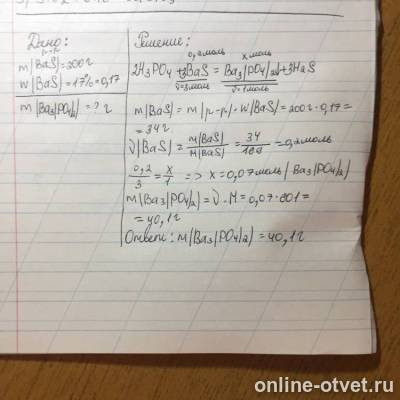 Дано:
р-р
m(BaS)=200г
w(BaS)=17%=0,17
m(Ba3(PO4)2)=? г
Решение:
0,2моль х моль
2H3PO4+3BaS=Ba3(PO4)2+3H2S
ν=3моль ν=1моль
m(BaS)=m(р-р)·w(BaS)=200г·0,17=
=34г
ν(BaS)=m(BaS)/M(BaS)=34/169=0,2моль
0,2/3=x/1 => x=0,07моль(Ba3(PO4)2)
m(Ba3(PO4)2)=ν·M=0,07·601=
=40,1г
Ответ: m(Ba3(PO4)2)=40,1г
online-otvet.ru